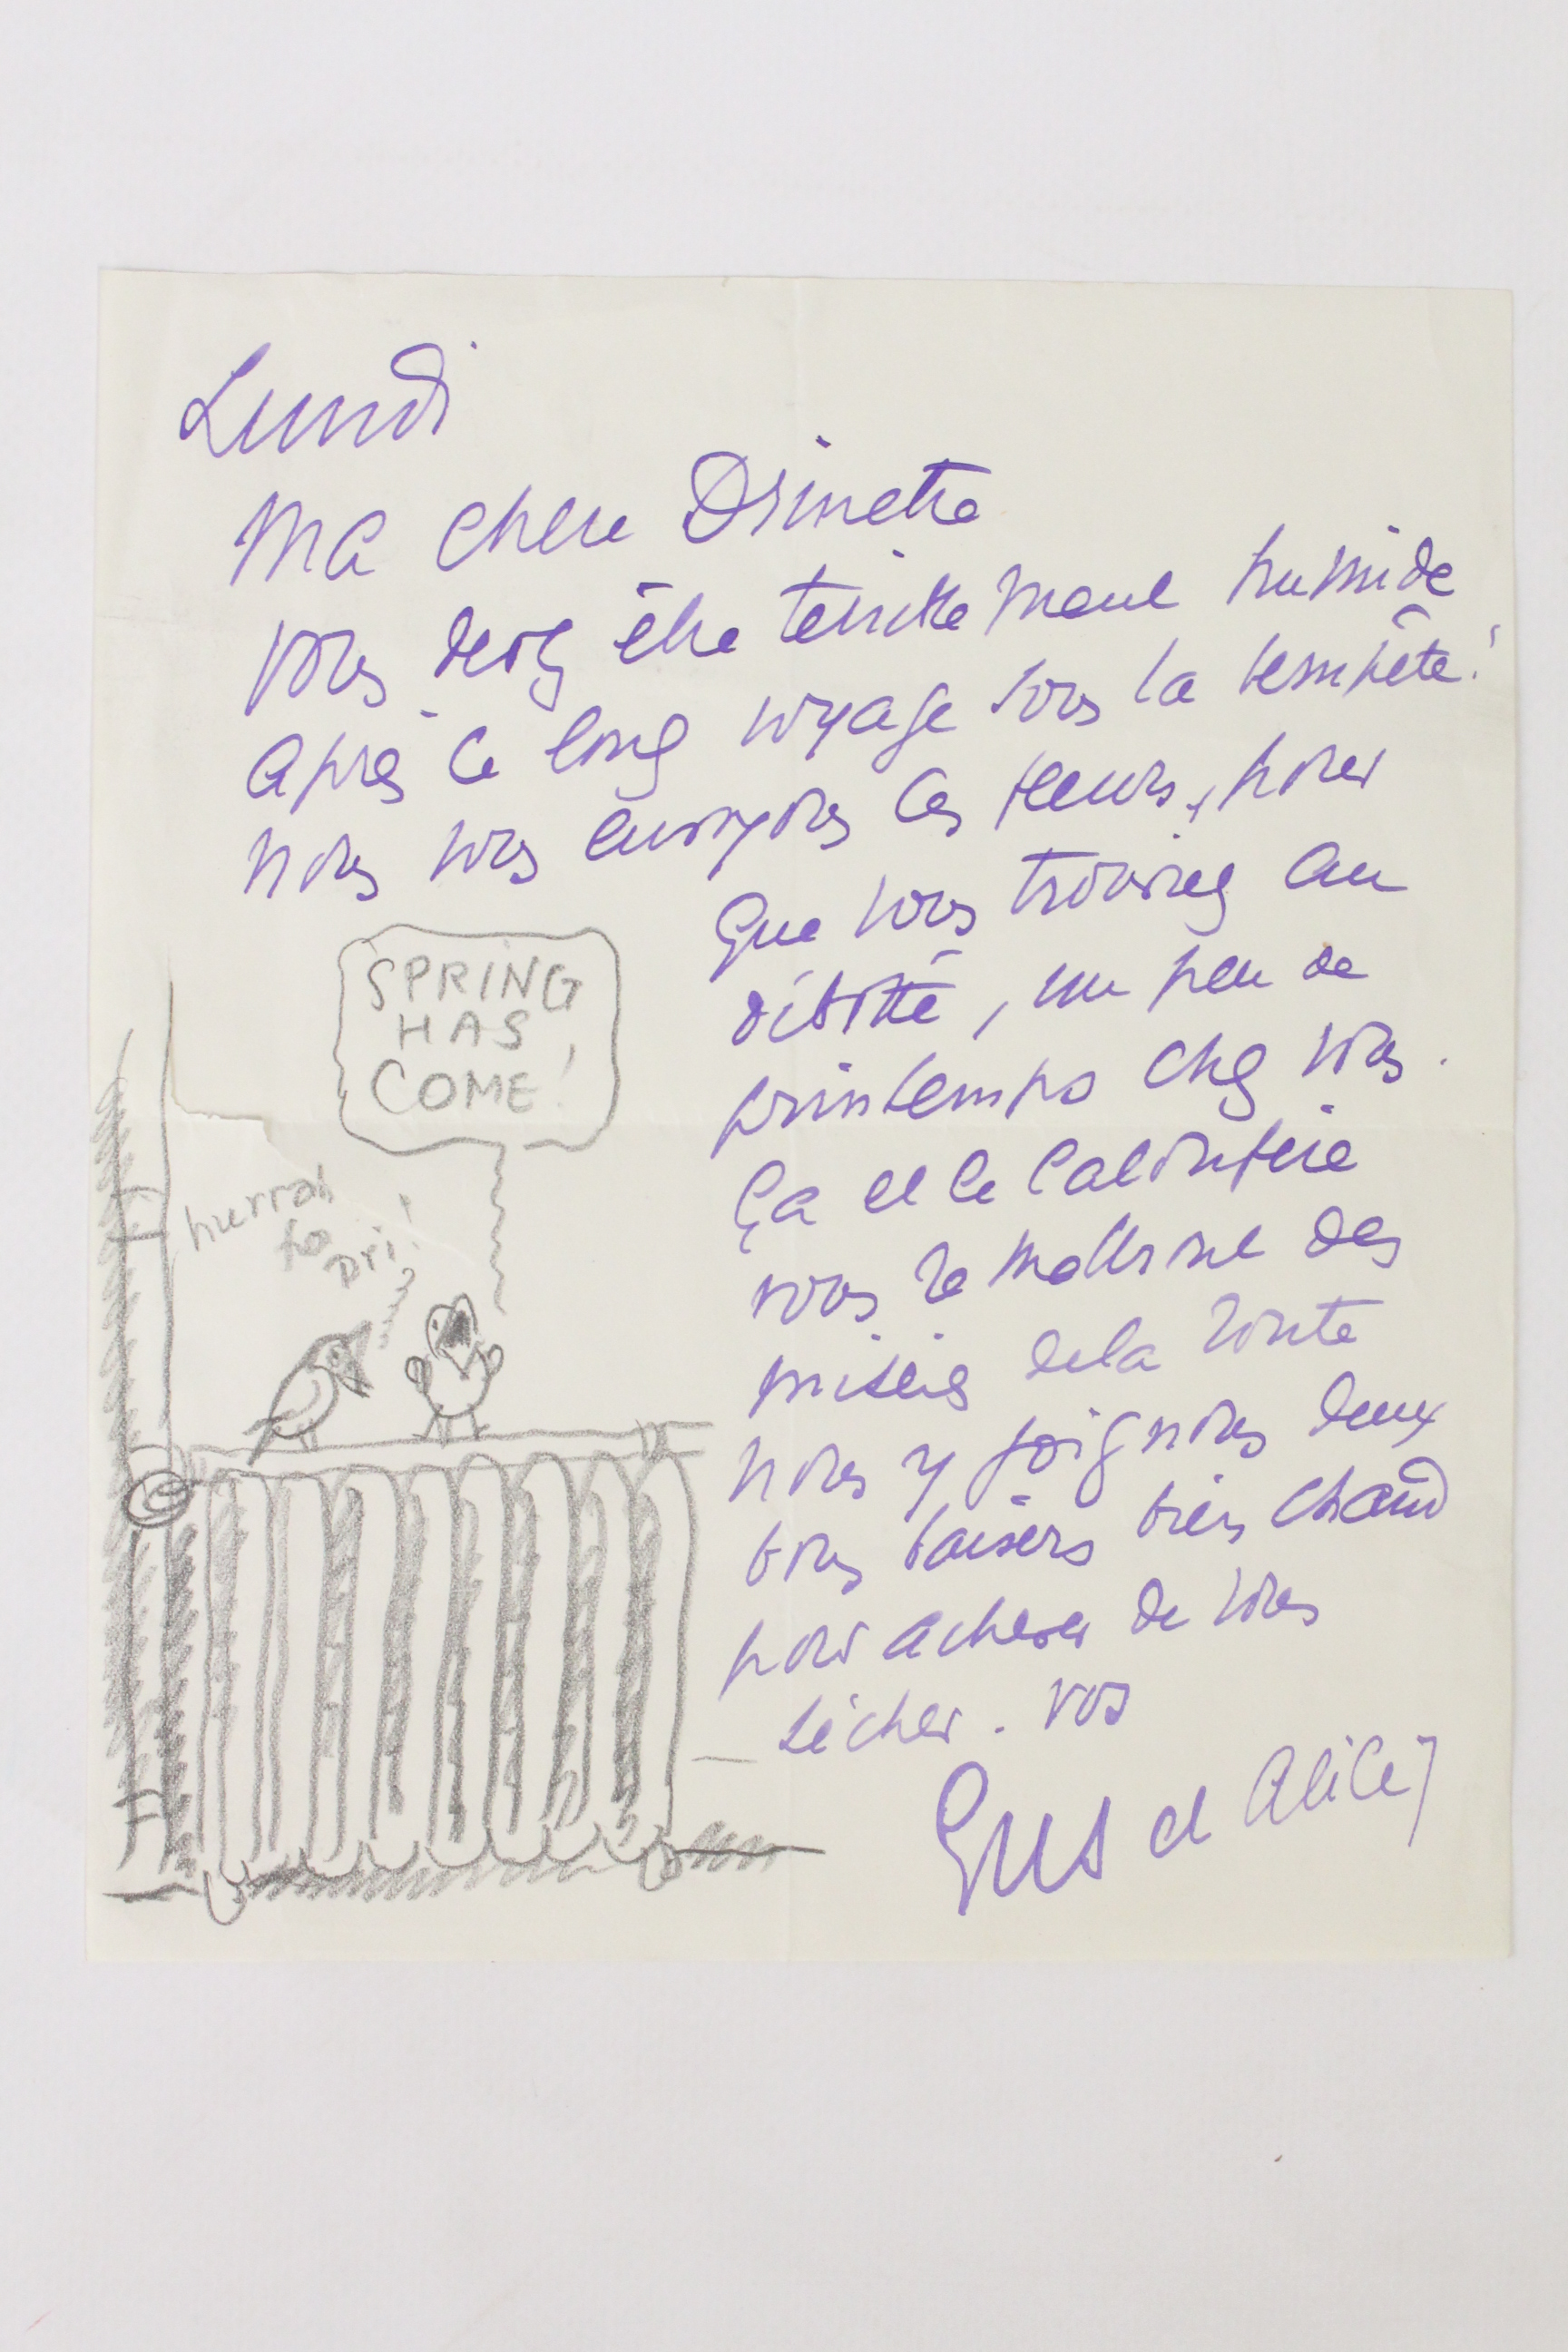 Lundi
Ma chère Drinette
vous devez être terriblement humide
après ce long voyage sous la tempête!
Nous vous envoyons ces fleurs, pour
que vous trouviez au
débotté, un peu de
printemps chez vous.
Ça et le calorifère
vous remettront des
misères de la route
Nous y joignons deux
bons baisers bien chaud
pour achever de vous
sécher. vos
Gus et Alice
SPRING
HAS
COME!
hurrah
to
Dri!